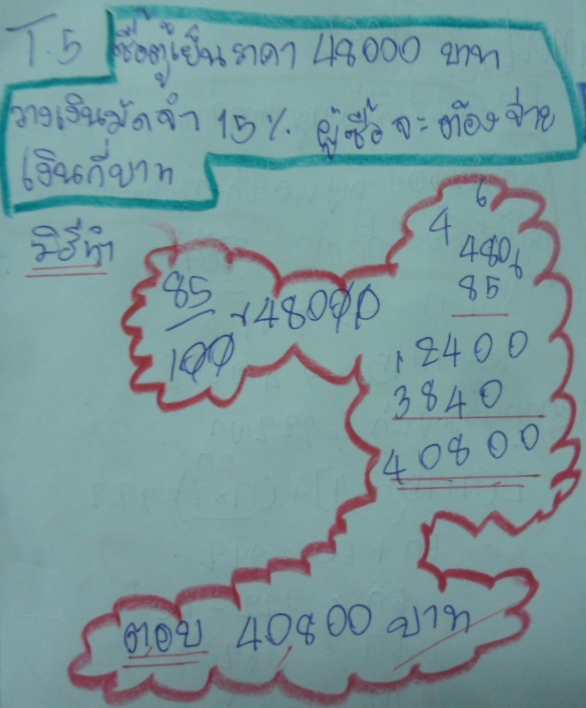 T.5 ซื้อตู้เย็นราคา 48000 บาท
วางเงินมัดจำ 15% ผู้ซื้อจะต้องจ่าย
เงินกี่บาท
วิธีทำ
85
100
×48000
6
4
480
85
2400
3840
40800
ตอบ 40800 บาท